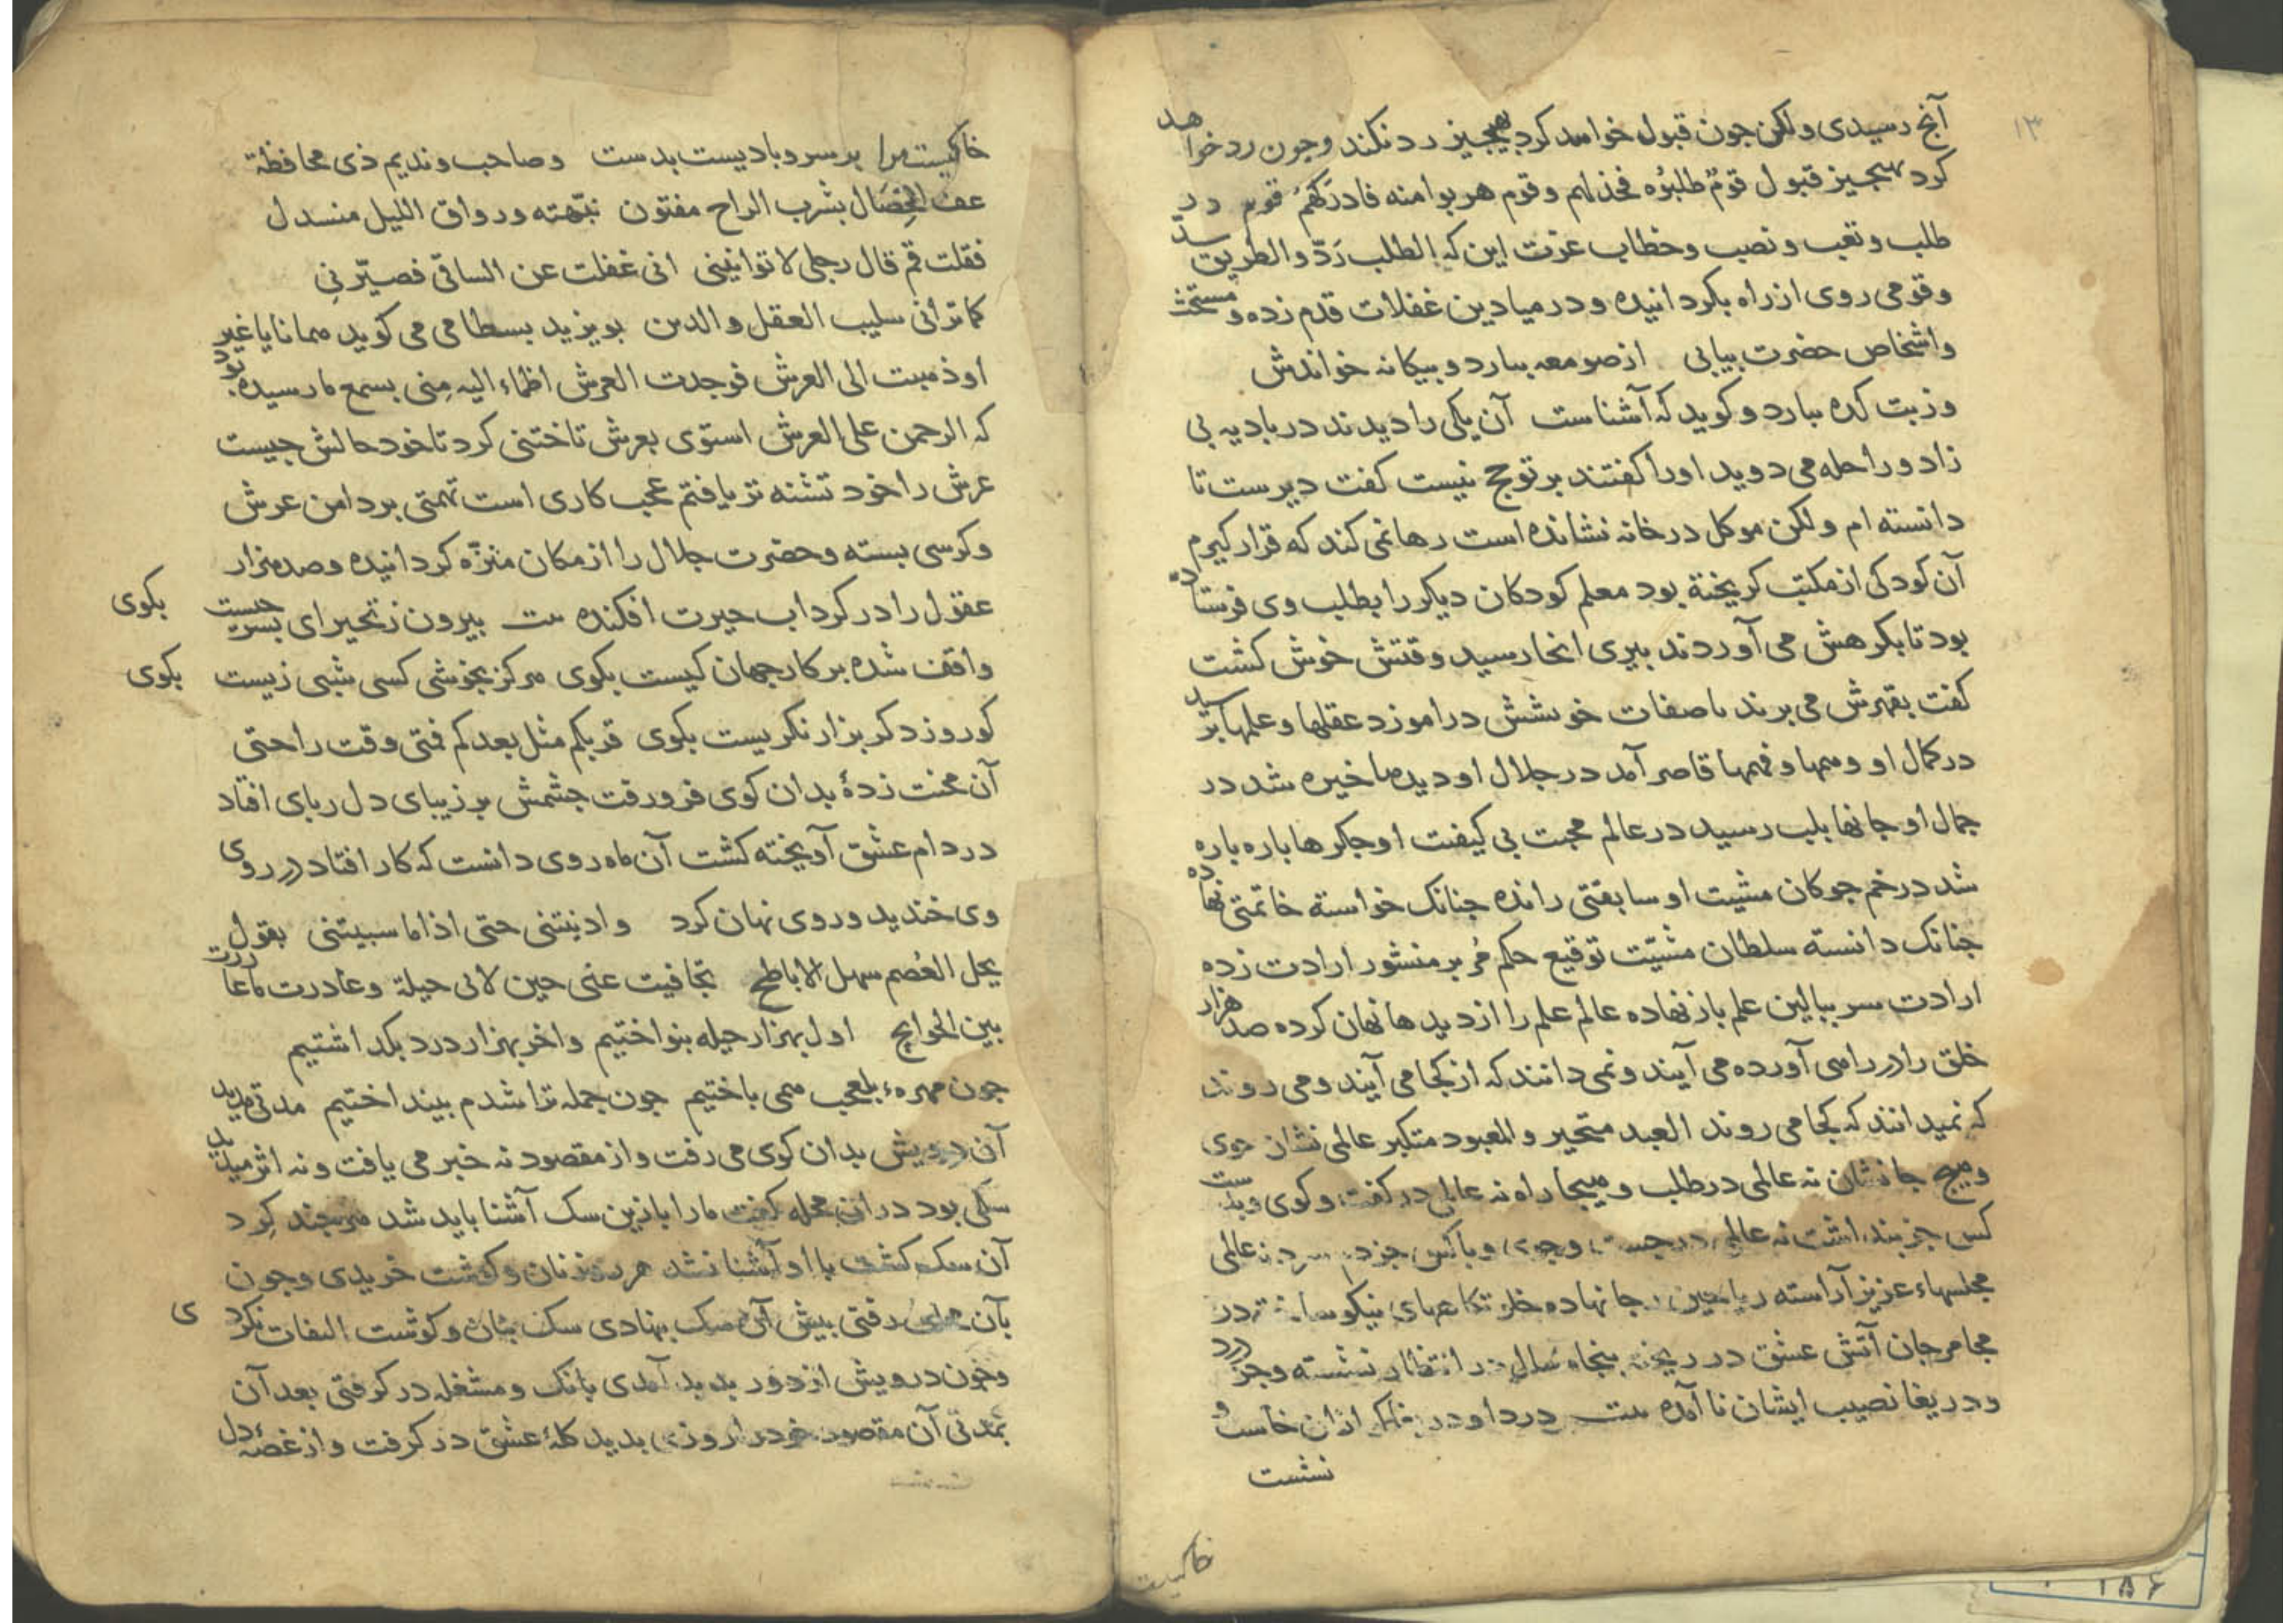 ۱۳
آنج رسیدی ولکن جون قبول خواهد کرد بهیجیز رد نکند وجون رد خواهد
کرد بهیجیز قبول قومٌ طلبوُه فخذلهم وقوم هربوا منه فادرَکهُمُ قومی در
طلب وتعب ونصب وخطاب عزت این که الطلب رَدّ والطریق سدّ
وقومی روی از راه بکردانیده ودر میادین غفلات قدم زده و
واشخاص حضرت بیابی از صومعه بیارد وبیکانه خواندش
وزبت کده بیارد وکوید که آشناست آن یکی را دیدند در بادیه بی
زاد وراحله می دوید اورا کفتند بر توحج نیست کفت دیرست تا
دانسته ام ولکن موکل در خانه نشانده است رها نمی کند که قرار کیرم
آن کودکی از مکتب کریخته بود معلم کودکان دیکر را بطلب وی فرستاده
بود تا بکرهش می آوردند پیری انجا رسید وقتش خوش کشت
کفت بقهرش می برند تا صفات خوششش در اموزد عقلها وعلمها برسید
در کمال او وهمها وفهمها قاصر آمد در جلال او دیدها خیره شد در
جمال او جانها بلب رسید در عالم محبت بی کیفیت او جکرها باره باره
شد در خم جوکان مشیت او سابقتی رانده جنانک خواسته خاتمتی نهاده
جنانک دانسته سلطان مشیّت توقیع حکم مُر بر منشور ارادت زده
ارادت سر ببالین علم باز نهاده عالم علم را از دیدها نهان کرده صد هزار
خلق را در راهی آورده می آیند ونمی دانند که از کجا می آیند ومی روند
که نمیدانند که کجا می روند العبد متحیر والمعبود متکبر عالمی نشان جوی
وهیج جا نشان نه عالمی در طلب وهیجا راه نه عالمی در کفت وکوی وبدست
کس جز بنداشت نه عالمی در جست وجوی وبا کس جز نه عالمی
مجلسهاء عزیز آراسته ریاحین جانها نهاده خلوتکاههای نیکو ساخته در
مجامر جان آتش عشق در ریخته پنجاه سال در انتظار نشسته وجز درد
ودریغا نصیب ایشان نا آمده بیت دردا ودریغا که ازان خاست و
نشست
خاکیست
خاکیست مرا بر سر وبادیست بدست وصاحب وندیم ذی محافظة
عف الخِصَال بشرب الراح مفتون نبّهته ورواق اللیل منسدل
فقلت قم قال رجلی لا تواتینی انی غفلت عن الساقی فصیّرنی
کما ترانی سلیب العقل والدین بویزید بسطامی می کوید همانا یا غیر
او ذهبت الی العرش فوجدت العرش اظماء الیه مِنی بسمع ما رسیده بود
که الرحمن علی العرش استوی بعرش تاختنی کرد تا خود حالش جیست
عرش را خود تشنه تر یافتم عجب کاری است تهمتی بر دامن عرش
وکرسی بسته وحضرت جلال را از مکان منزّه کردانیده وصد هزار
عقول را در کرداب حیرت افکنده بیت بیرون ز تحیر ای بسر جیست بکوی
واقف شده بر کار جهان کیست بکوی هرکز بخوشی کسی شبی زیست بکوی
کو روز دکر بزار نکریست بکوی قربکم مثل بعدکم فمتی وقت راحتی
آن محنت زدهٔ بدان کوی فرو رفت جشمش بر زیبای دل ربای افتاد
در دام عشق آویخته کشت آن ماه روی دانست که کار افتاد در روی
وی خندید وروی نهان کرد وادنیتنی حتی اذا ما سبیتنی بقول
یحل العُصم سهل الاباطح تجافیت عنی حین لا لی حیلة وغادرت ما غادرت
بین الجوانح اول بهزار حیله بنواختیم واخر بهزار درد بکداشتیم
جون مهرهء بلعجب همی باختیم جون جمله ترا شدم بینداختیم مدتی مدید
آن درویش بدان کوی می رفت واز مقصود نه خبر می یافت ونه اثر میدید
سکی بود دران محله کفت مارا با زین سک آشنا باید شد هرجند کِرد
آن سک کشت با او آشنا نشد هر روز نان وکوشت خریدی وجون
بآن محله رفتی بیش آن سک بنهادی سک بنان وکوشت التفات نکردی
وجون درویش از دور بدید آمدی بانک ومشغله در کرفتی بعد آن
بمدتی آن مقصود خودرا روزی بدید کلهٔ عشق در کرفت واز غصهٔ دل
۱۸۶